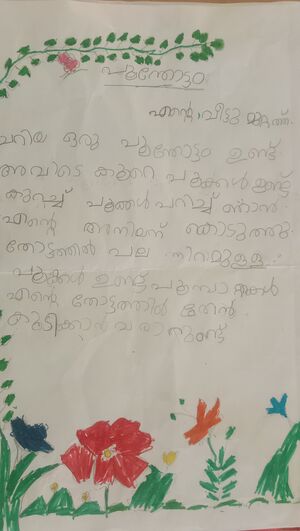 പൂന്തോട്ടം
എൻ്റെ വീട്ടു മുറ്റത്ത്
ചറിയ ഒരു പൂന്തോട്ടം ഉണ്ട്
അവിടെ കുറെ പൂക്കൾ ഉണ്ട്
കുറച്ച് പൂക്കൾ പറിച്ച് ഞാൻ
എൻ്റെ കൊടുത്തു
തോട്ടത്തിൽ പല നിറമുള്ള
പൂക്കൾ ഉണ്ട് പൂമ്പാറ്റകൾ
എൻ്റെ തോട്ടത്തിൽ തേൻ
കുടിക്കാൻ വരാറുണ്ട്